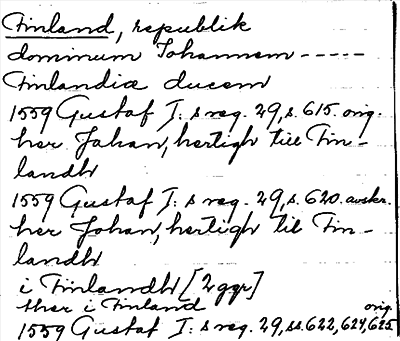 Finland, republik
dominum Johannem -----
Finlandiæ ducem
1559 Gustaf I: s reg. 29, s. 615. orig.
her Johan, hertigh till Fin-
landh
1559 Gustaf I: s reg. 29, s. 620. avskr.
her Johan, hertigh til Fin-
landh
i Finlandh [2 ggr]
ther i Finland
1559 Gustaf I: s reg. 29, ss. 622, 624, 625 orig.